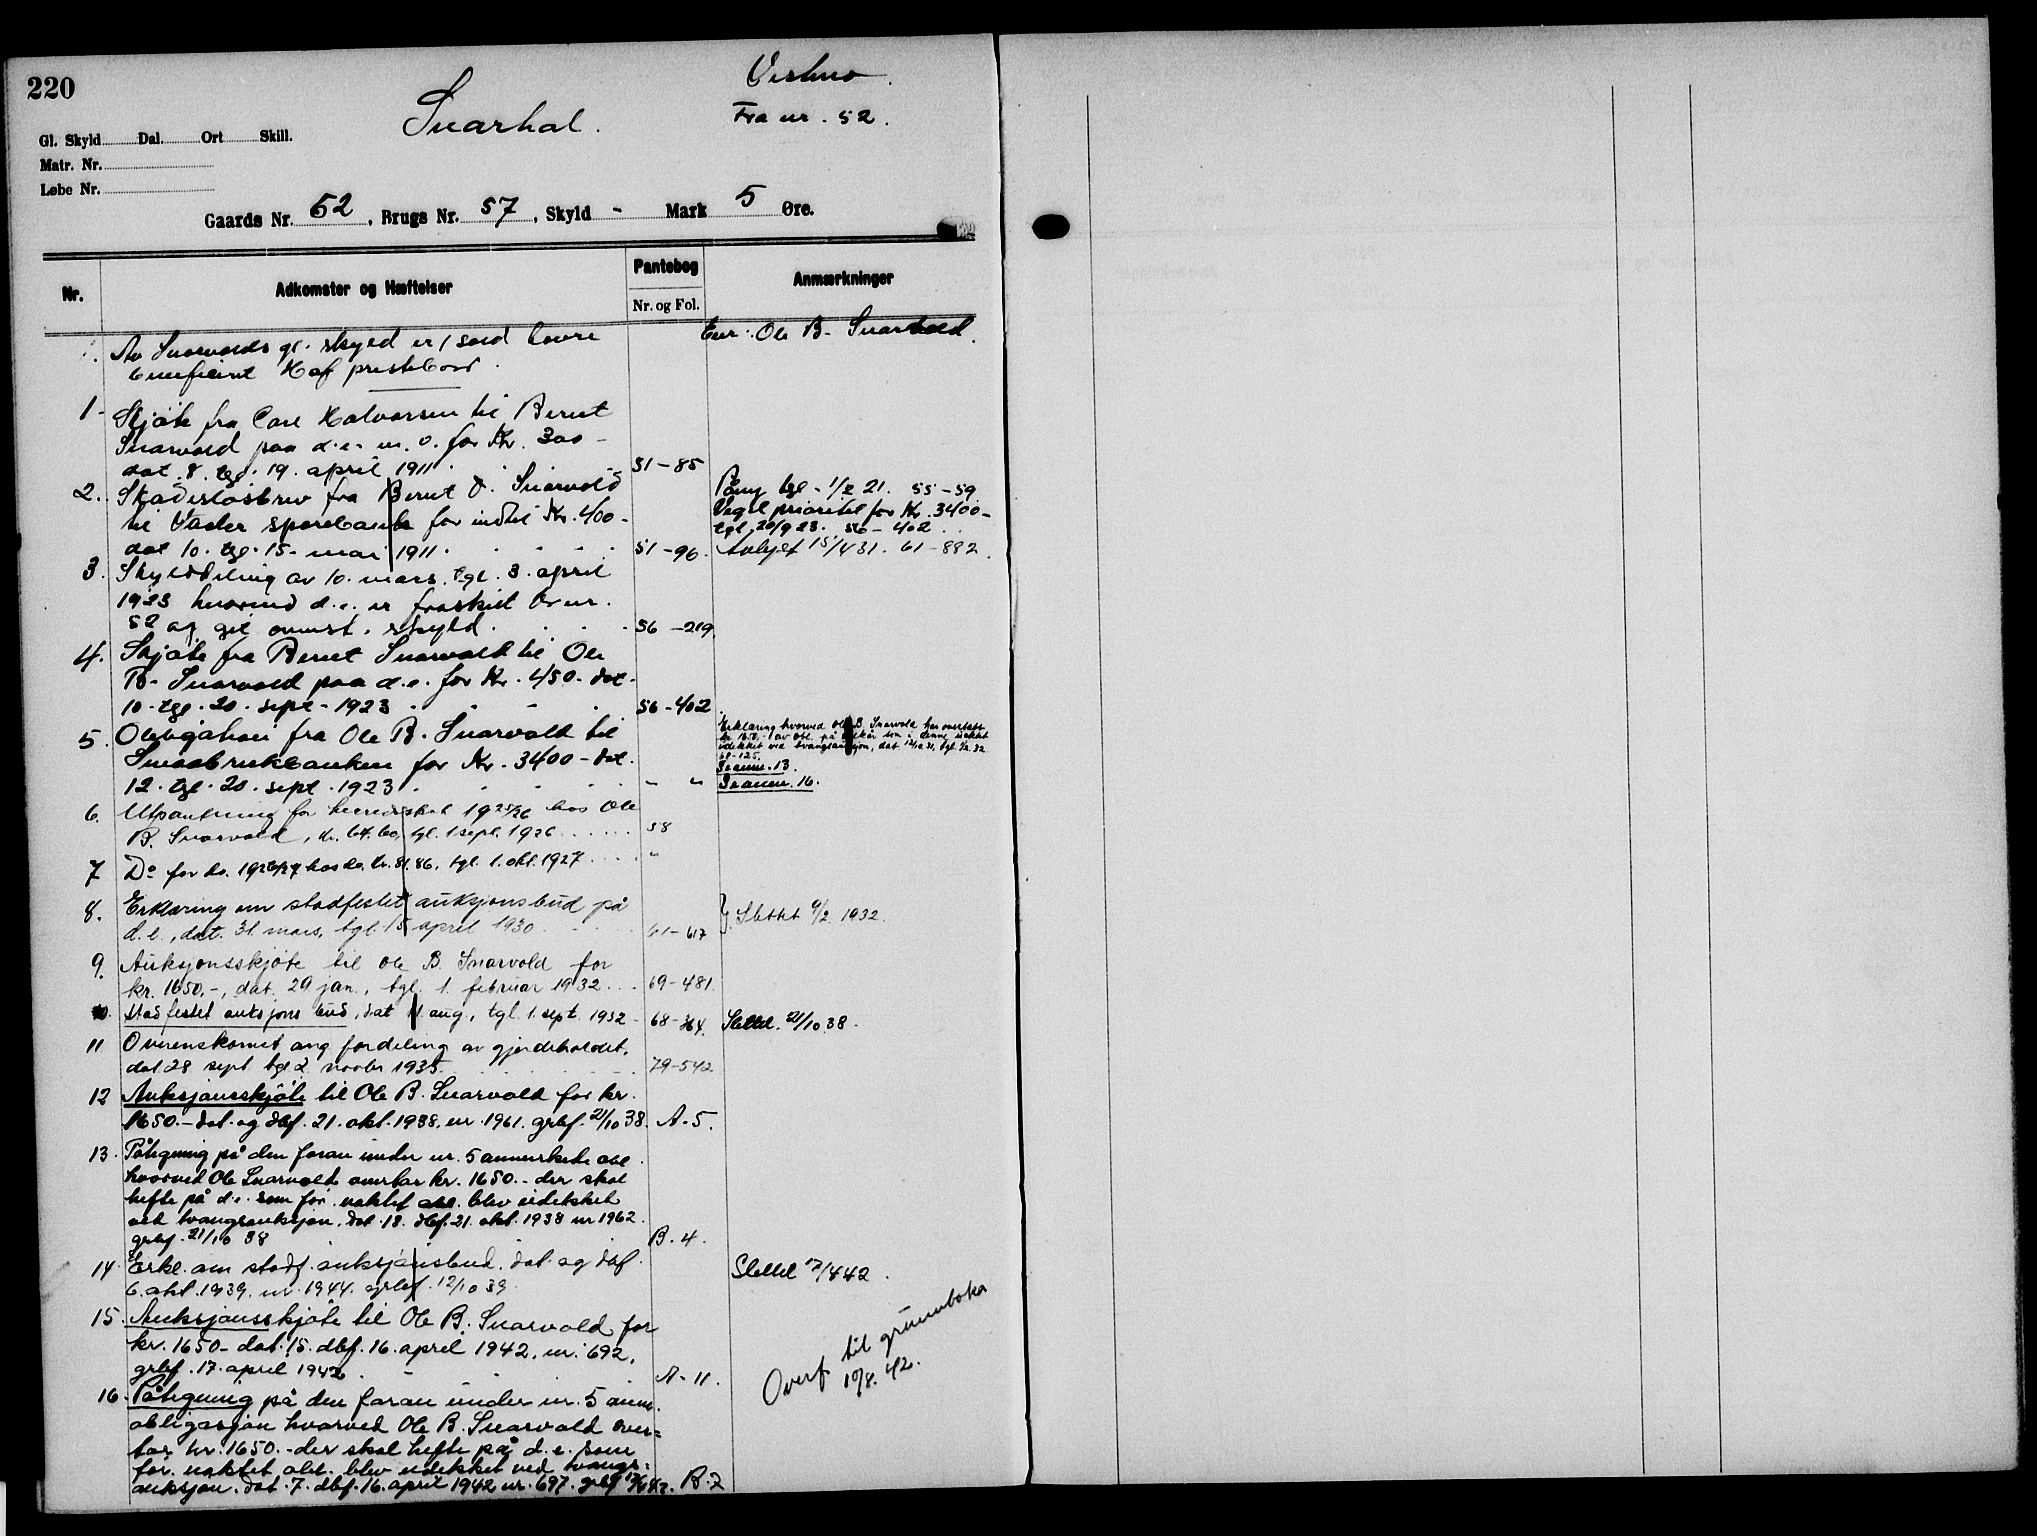 220
Vestmo.
Snarhol.
Fra nr. 52.
Gl. Skyld Dal. Ort Skill.
Matr. Nr.
Løbe Nr.
Gaards Nr. 52, Brugs Nr. 57, Skyld - Mark 5 Øre.
Nr. Adkomster og Hæftelser Pantebog Anmærkninger
Nr. og Fol.
Av Snarvolds gl. skyld er 1 sold
Eier: Ole B. Snarvold.
prestebord.
1. Skjøte fra Carl Halvorsen til Bernt
Snarvold paa d.e. m. o. for Kr. 300 -
dat. 8. tgl. 19. april 1911. 51-85
2. Skadesløsbrev fra Bernt O. Snarvold
til Vaaler sparebank for indtil Kr. 400-
dat 10. tgl. 15. mai 1911. 51-96.
Påny tgl. 21. 55-59
Veget prioritet for Kr. 3400-
tgl. 20/9 23. 56-402
Avlyst 15/4 31. 61-882.
3. Skylddeling av 10. mars. tgl. 3. april
1923 hvorved d.e. er fraskilt br.nr.
52 og git ommst. skyld. 56-219
4. Skjøte fra Bernt Snarvold til Ole
B. Snarvold paa d.e. for Kr. 450- dat.
10. tgl. 20. sept. 1923 56-402
5. Obligation fra Ole B. Snarvold til
Smaabrukbanken for Kr. 3400- dat.
12. tgl. 20. sept. 1923 - "
Erklæring hvorved Ole B. Snarvold har overtatt
kr. 1650,- av obl. på vilkår som i denne
udekket ved tvangsauksjon, dat.
68-125.
Se anm. 13.
Se anm. 16.
6. Utpantning for herredsskat 1925/26 hos Ole
B. Snarvold, kr. 64.60, tgl. 1 sept. 1926 58
7 Do for do. 1926/27 hos do. kr. 81.86, tgl. 1. okt. 1927 "
8. Erklæring om stadfestet auksjonsbud på
d.e., dat. 31. mars, tgl. 15 april 1930 61-617
Slettet 9/2 1932.
9. Auksjonsskjøte til Ole B. Snarvold for
kr. 1650,-, dat. 29 jan., tgl. 1. februar 1932 69-481.
10. Stadfestet auksjons bud, dat 11. aug, tgl. 1. sept. 1932 - 68-364. Slettet. 21/10 38.
11 Overenskomst ang fordeling av gjerdeholdet,
dat 28 sept tgl 2 novbr 1935. 79-542
12 Auksjonsskjøte til Ole B. Snarvold for kr.
1650.- dat. og dbf. 21. okt. 1938. nr. 1961. grbf. 21/10 38. A.5.
13. Påtegning på den foran under nr. 5 anmerkede obl.
hvorved Ole Snarvold overtar kr. 1650.- der skal
hefte på d.e. som før. nektet obl. blev udekket
ved tvangsauksjon, dat. 18. dbf. 21. okt. 1938 nr 1962.
grbf. 21/10 38 B.4.
14. Erkl. om stadf. auksjonsbud, dat. og dbf.
6. okt. 1939. nr. 1944. grbf. 12/10 39.
Slettet 17/4 42.
15. Auksjonsskjøte til Ole B. Snarvold for
kr. 1650- dat. 15. dbf. 16. april 1942, nr. 692.
grbf. 17. april 1942. A-11.
Overf. til grunnboka
10/8. 42.
16. Påtegning på den foran under nr. 5 anm.
obligasjon hvorved Ole B. Snarvold over=
tar kr. 1650.- der skal hefte på d.e. som
før. nektet obl. blev udekket ved tvangs=
auksjon. dat. 7. dbf. 16. april 1942 nr. 697. grbf 17/4 42. B.7